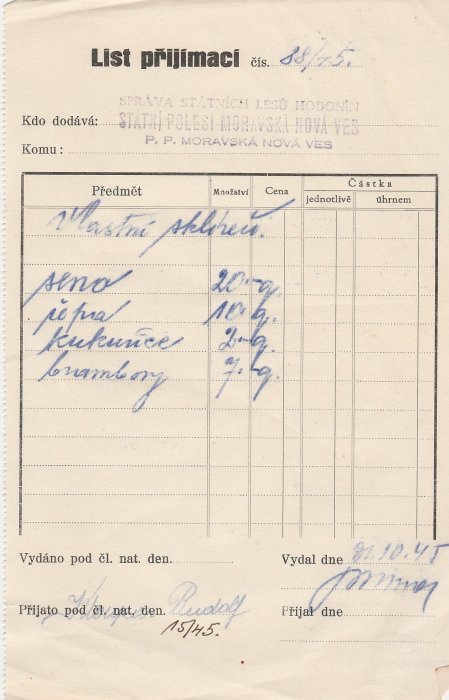 List přijímací čís. 88/45.
SPRÁVA STÁTNÍCH LESŮ HODONÍN
Kdo dodává: STÁTNÍ POLESÍ MORAVSKÁ NOVÁ VES
Komu: P. P. MORAVSKÁ NOVÁ VES
Předmět Množství Cena Částka
jednotlivě úhrnem
Vlastní sklizeň.
seno 20.-q.
řepa 10.-q.
kukuřice 2.-q.
brambory 7.-q.
Vydáno pod čl. nat. den. Vydal dne 31.10.45
Přijato pod čl. nat. den. Rudolf Přijal dne
15/45.